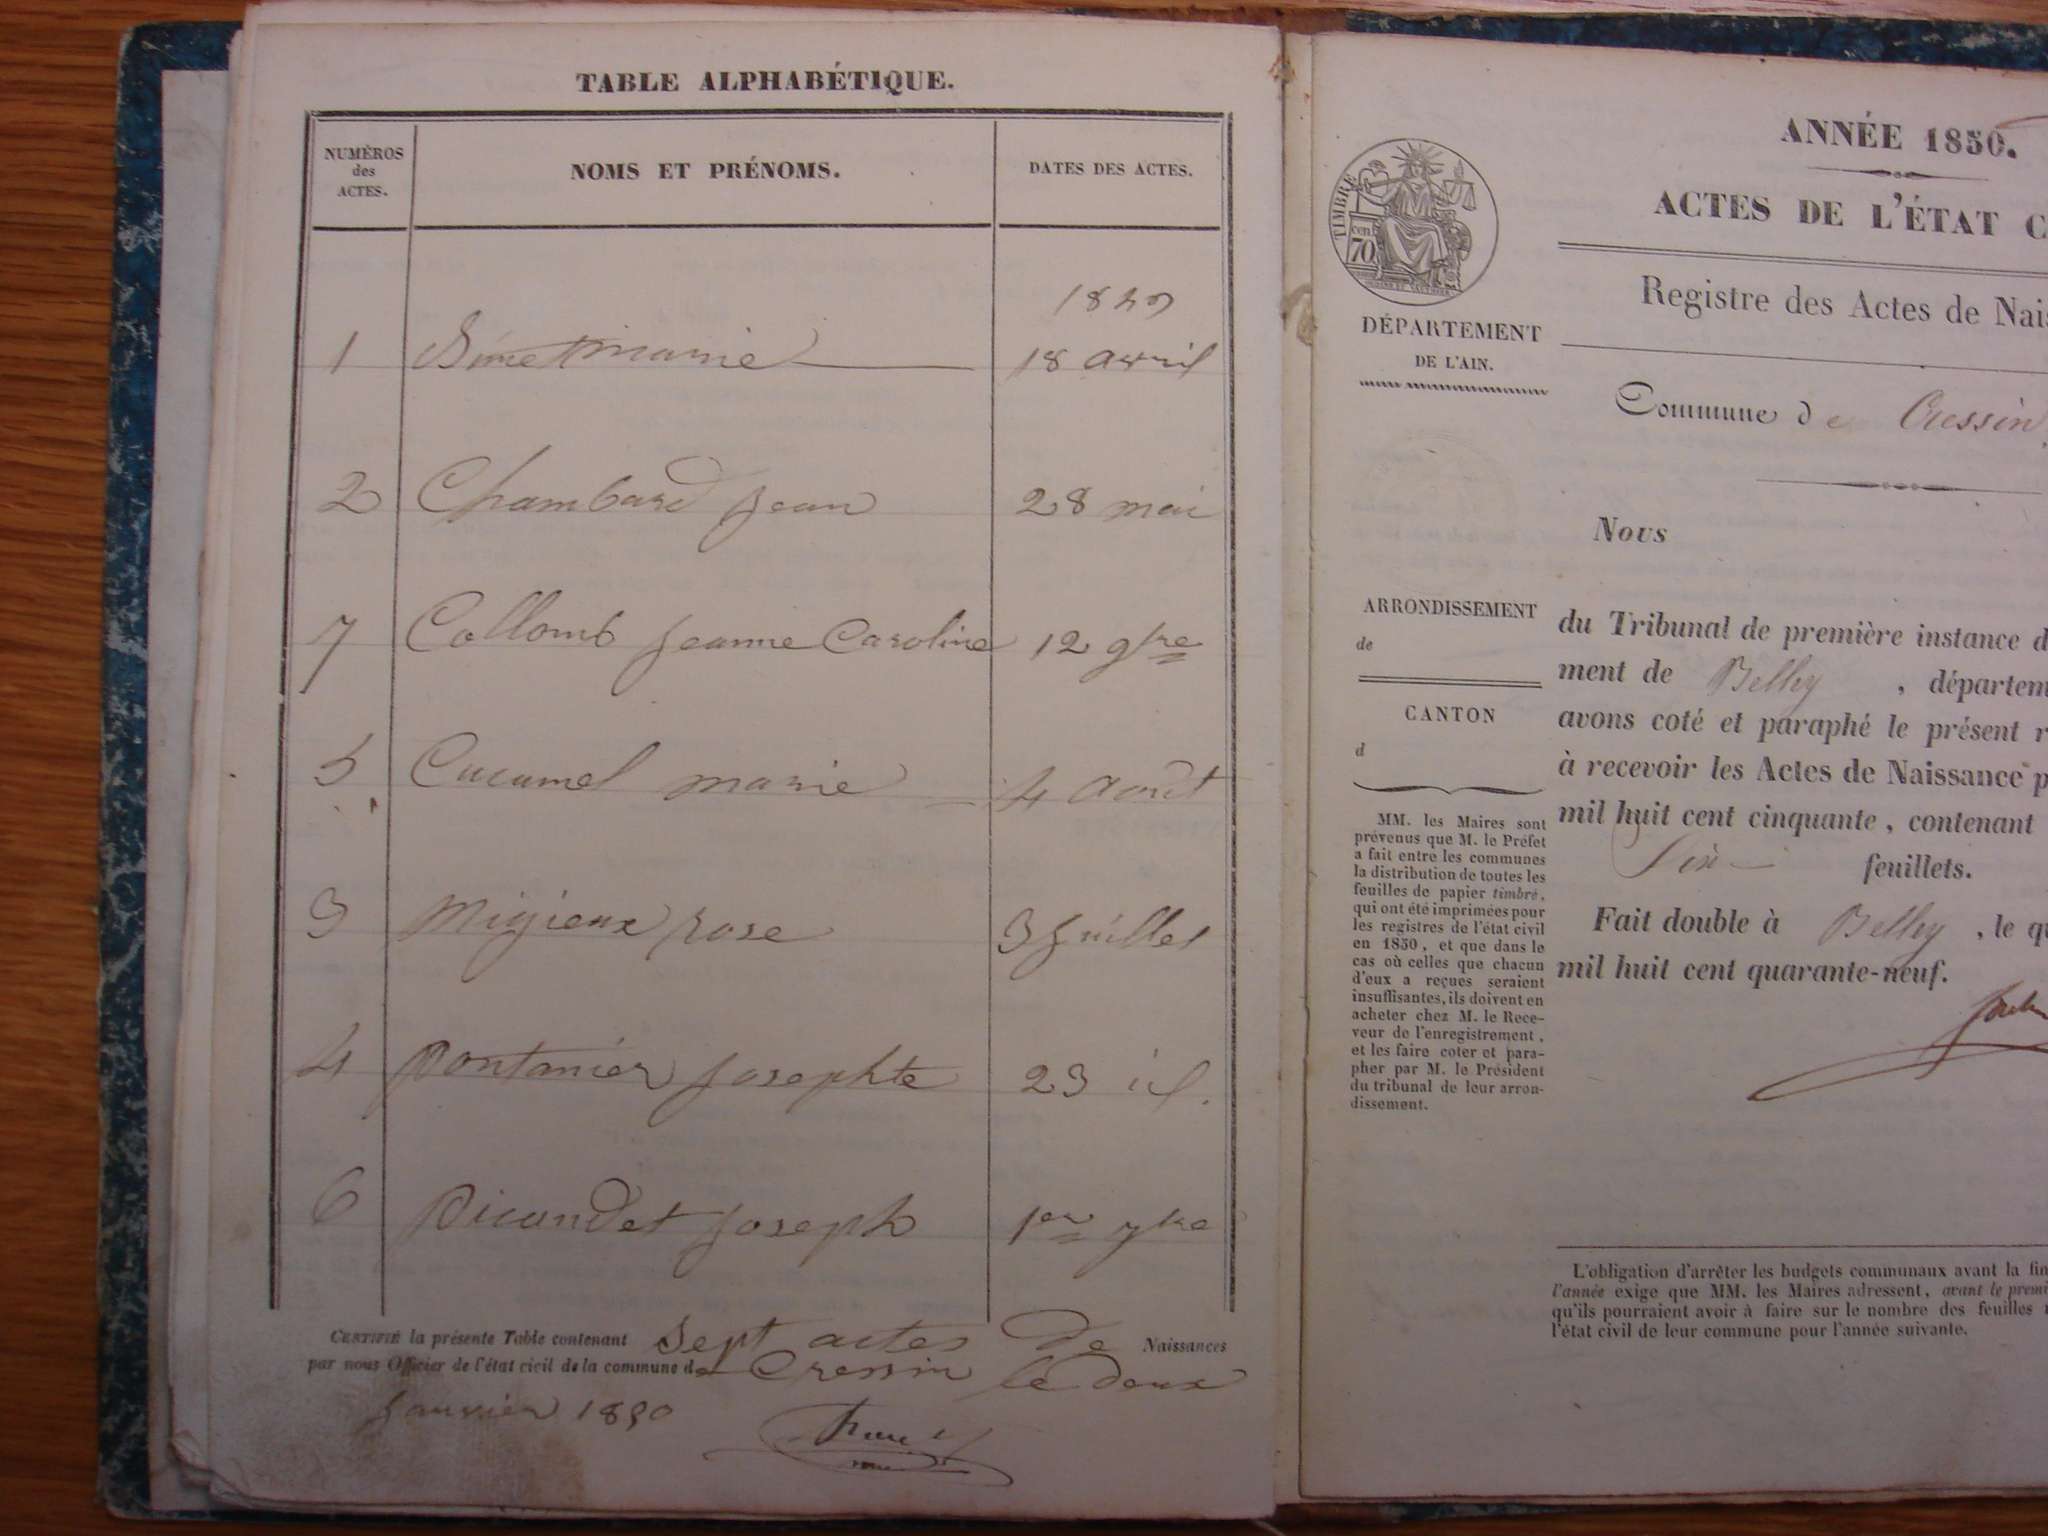 TABLE ALPHABÉTIQUE.
NUMÉROS des ACTES.
NOMS ET PRÉNOMS.
DATES DES ACTES.
1849
1 marie 18 avril
2 Chambard jean 28 mai
7 Collomb jeanne Caroline 12 9bre
5 Cucumel marie 4 Août
3 Migieux rose 3 juillet
4 Pontanier josephte 23 id.
6 Picandet joseph 1er 7bre
CERTIFIÉ la présente Table contenant Sept actes De Naissances
par nous Officier de l'état civil de la commune de Cressin le deux
janvier 1850
ANNÉE 1850.
ACTES DE L'ÉTAT C
Registre des Actes de Nais
TIMBRE
cen.
70
DÉPARTEMENT
DE L'AIN.
Commune de Cressin
Nous
ARRONDISSEMENT
de
CANTON
d
du Tribunal de première instance d
ment de Belley , départem
avons coté et paraphé le présent r
à recevoir les Actes de Naissance p
mil huit cent cinquante, contenant
Six feuillets.
Fait double à Belley , le qu
mil huit cent quarante-neuf.
MM. les Maires sont
prévenus que M. le Préfet
a fait entre les communes
la distribution de toutes les
feuilles de papier timbré,
qui ont été imprimées pour
les registres de l'état civil
en 1850, et que dans le
cas où celles que chacun
d'eux a reçues seraient
insuffisantes, ils doivent en
acheter chez M. le Rece-
veur de l'enregistrement,
et les faire coter et para-
pher par M. le Président
du tribunal de leur arron-
dissement.
L'obligation d'arrêter les budgets communaux avant la fin
l'année exige que MM. les Maires adressent, avant le premi
qu'ils pourraient avoir à faire sur le nombre des feuilles
l'état civil de leur commune pour l'année suivante.